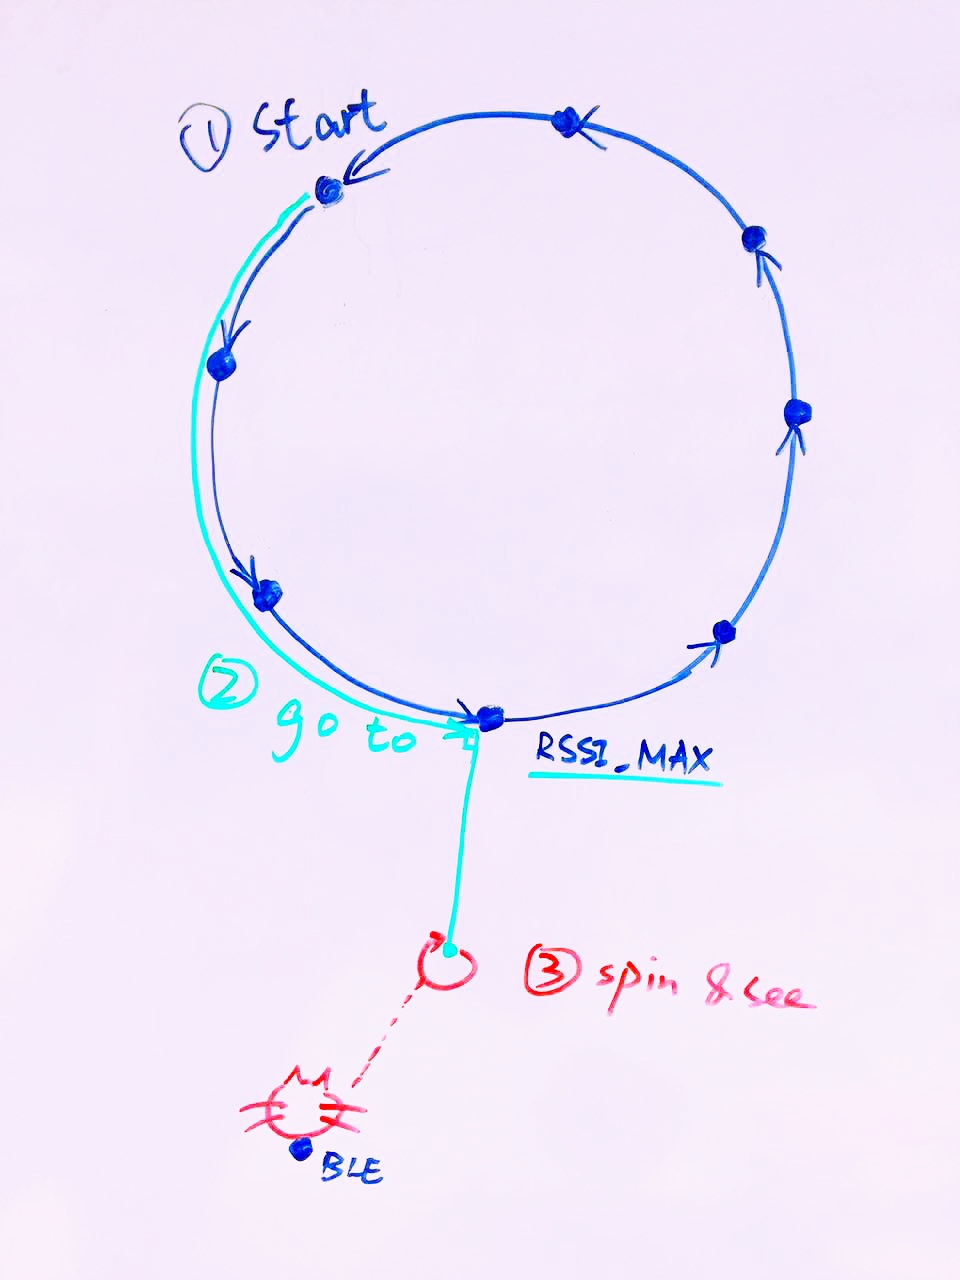 ① Start
② go to
RSSI_MAX
③ spin & see
BLE